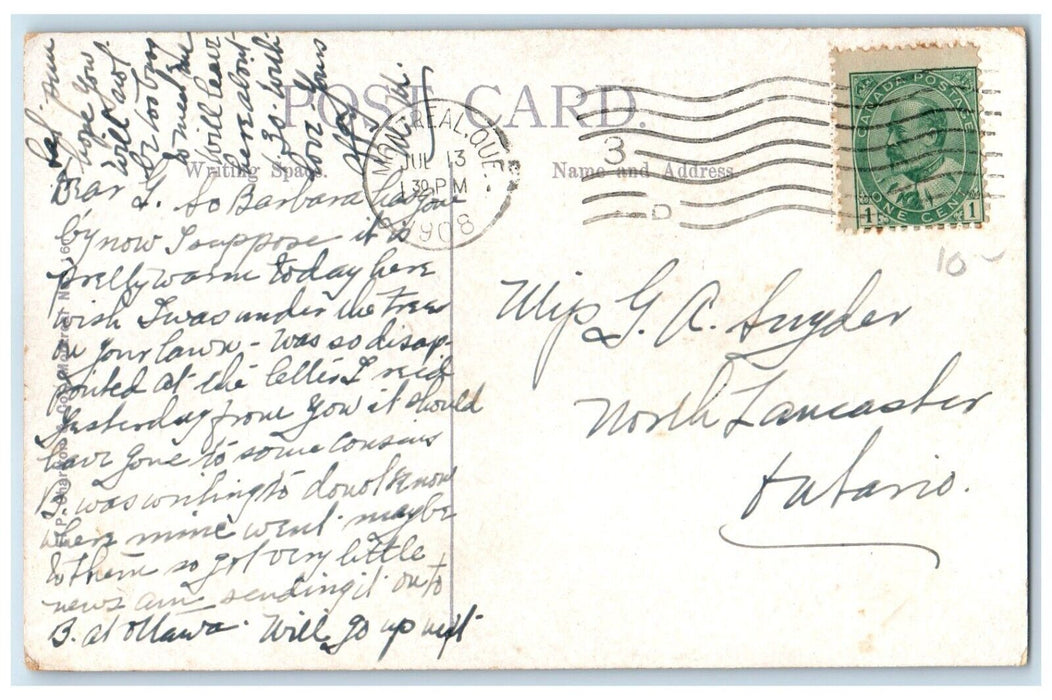 POST CARD.
Writing Space.
Name and Address.
MONTREAL, QUE.
JUL 13
1 30 PM
1908
3
D
CANADA POSTAGE
1 ONE CENT 1
10-
Dear G. So Barbara has gone
by now I suppose it is
pretty warm today here
wish I was under the trees
on your lawn - was so disap-
pointed at the letter I rec'd
yesterday from you it should
have gone to some cousins
B. was writing to do not know
where mine went. maybe
to them so got very little
news am sending it on to
B. at Ottawa. Will go up next
Sat.
hope you
will not
be too busy
to meet me
will leave
here about
5.30. with
love Yours
Miss G. A. Snyder
North Lancaster
Ontario.